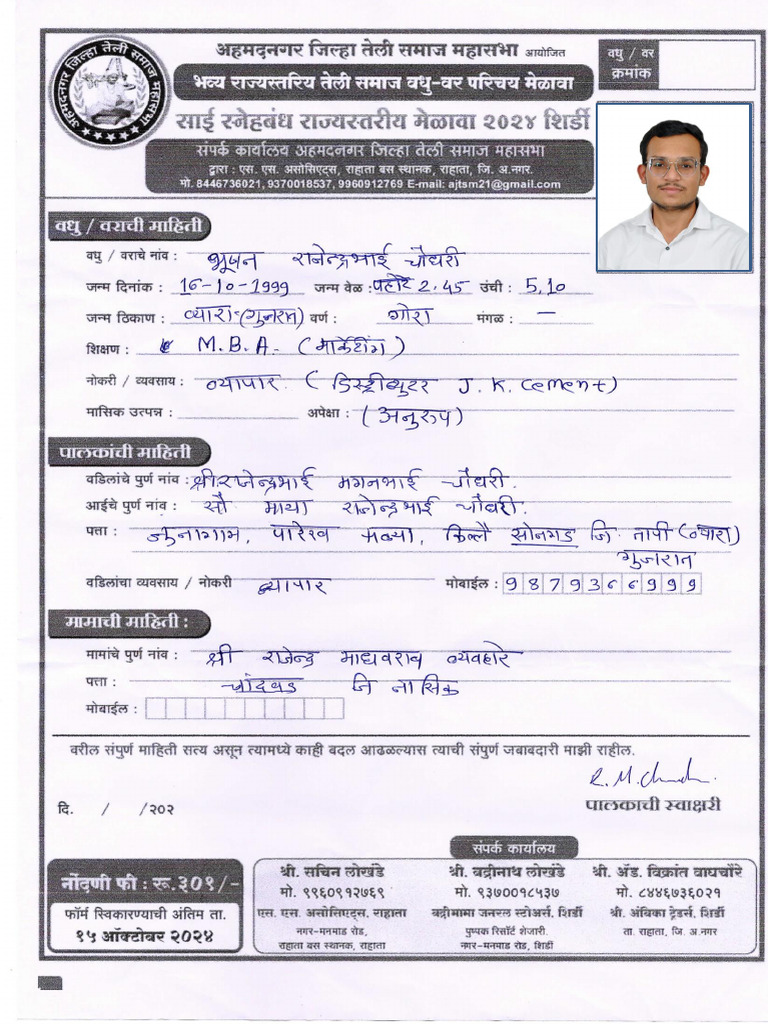 अहमदनगर जिल्हा तेली समाज महासभा आयोजित
वधु / वर
क्रमांक
अहमदनगर जिल्हा तेली समाज महासभा
भव्य राज्यस्तरिय तेली समाज वधु-वर परिचय मेळावा
साई स्नेहबंध राज्यस्तरीय मेळावा २०२४ शिर्डी
संपर्क कार्यालय अहमदनगर जिल्हा तेली समाज महासभा
द्वारा : एस. एस. असोसिएट्स, राहाता बस स्थानक, राहाता, जि. अ.नगर.
मो. 8446736021, 9370018537, 9960912769 E-mail: ajtsm21@gmail.com
वधु / वराची माहिती
वधु / वराचे नांव : भूषन राजेन्द्रभाई चौधरी
जन्म दिनांक : 16-10-1999 जन्म वेळ : पहाटे 2.45 उंची : 5,10
जन्म ठिकाण : व्यारा-(गुजरात) वर्ण : गोरा मंगळ : —
शिक्षण : M.B.A. (मार्केटींग)
नोकरी / व्यवसाय : व्यापार (डिस्ट्रीब्युटर J.K. Cement)
मासिक उत्पन्न : अपेक्षा : (अनुरुप)
पालकांची माहिती
वडिलांचे पुर्ण नांव : श्री.राजेन्द्रभाई मगनभाई चौधरी.
आईचे पुर्ण नांव : सौ माया राजेन्द्रभाई चौधरी.
पत्ता : जुनागाम, पारेख सोनगड जि. तापी (व्यारा)
गुजरात
वडिलांचा व्यवसाय / नोकरी व्यापार मोबाईल : 9879366999
मामाची माहिती :
मामांचे पुर्ण नांव : श्री राजेन्द्र माधवराव व्यवहारे
पत्ता : चांदवड जि नासिक
मोबाईल :
वरील संपुर्ण माहिती सत्य असून त्यामध्ये काही बदल आढळल्यास त्याची संपुर्ण जबाबदारी माझी राहील.
दि. / /२०२
पालकाची स्वाक्षरी
संपर्क कार्यालय
नोंदणी फी : रू.३०१/-
फॉर्म स्विकारण्याची अंतिम ता.
१५ ऑक्टोबर २०२४
श्री. सचिन लोखंडे
मो. ९९६०९१२७६९
एस. एस. असोसिएट्स, राहाता
नगर-मनमाड रोड,
राहाता बस स्थानक, राहाता
श्री. बद्रीनाथ लोखंडे
मो. ९३७००१८५३७
बद्रीमामा जनरल स्टोअर्स, शिर्डी
पुष्पक रिसॉर्ट शेजारी.
नगर-मनमाड रोड, शिर्डी
श्री. ॲड. विक्रांत वाघचौरे
मो. ८४४६७३६०२१
श्री. अंबिका ट्रेडर्स, शिर्डी
ता. राहाता, जि. अ.नगर